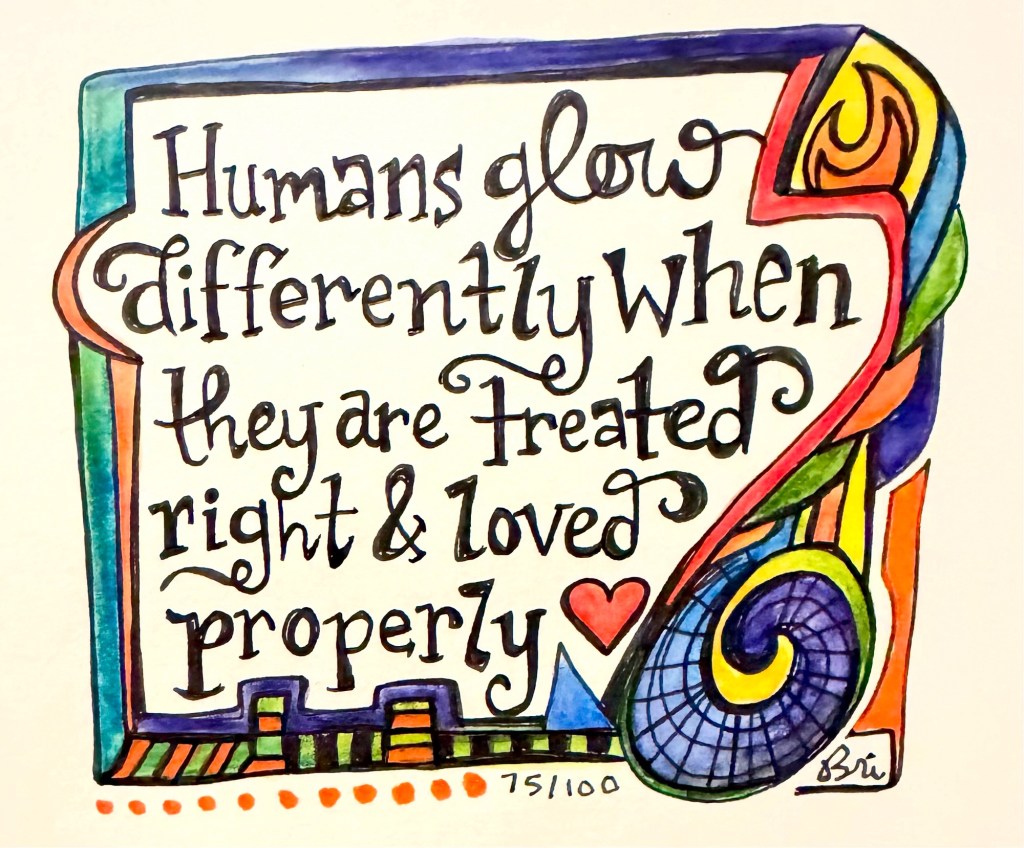 Humans glow
differently when
they are treated
right & loved
properly
75/100
Bri